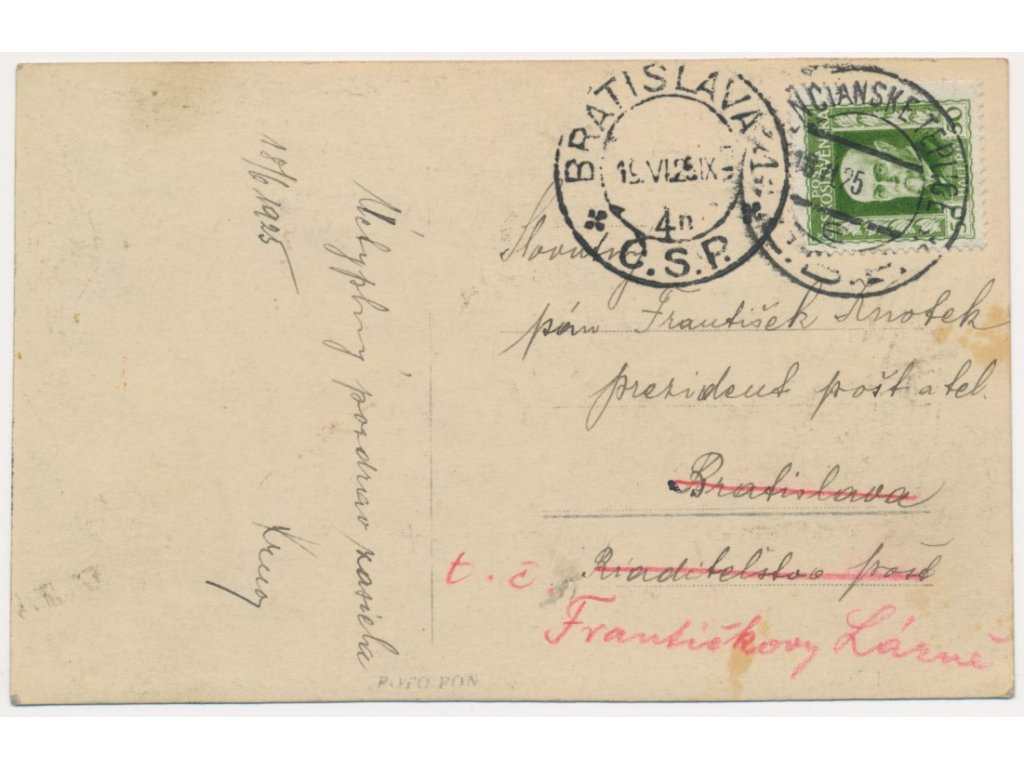 18/6 1925
Úctyplný pozdrav zasiela
BRATISLAVA
19.VI.25.IX
4n
Č.S.P.
NČIANSKE TEPLICE
25
Slovutný
pán František Knotek
prezident pošt a tel.
Bratislava
Riaditeľstvo pošt
t. č.
Františkovy Lázně
FOTO FON